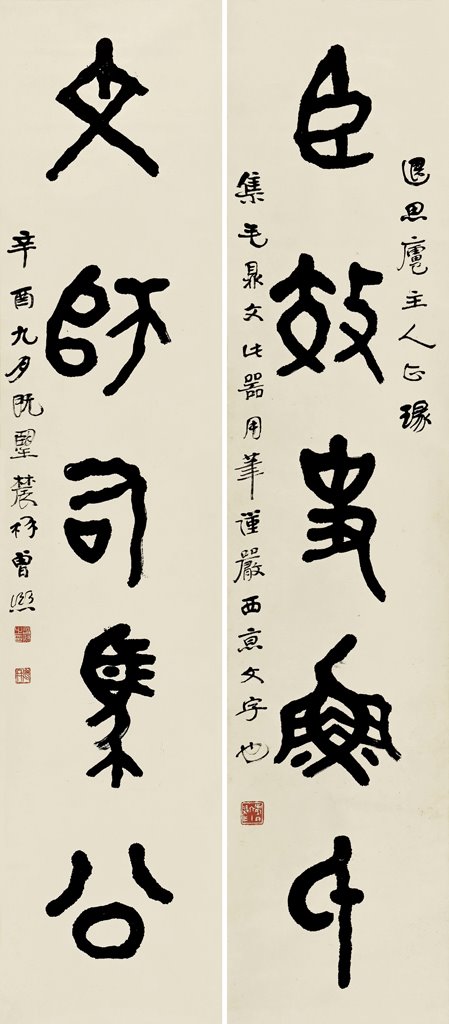 退思廬主人正瑑
臣效事中
集毛鼎文此器用筆謹嚴西京文字也
文師司集公
辛酉九月既望農髯曾熙